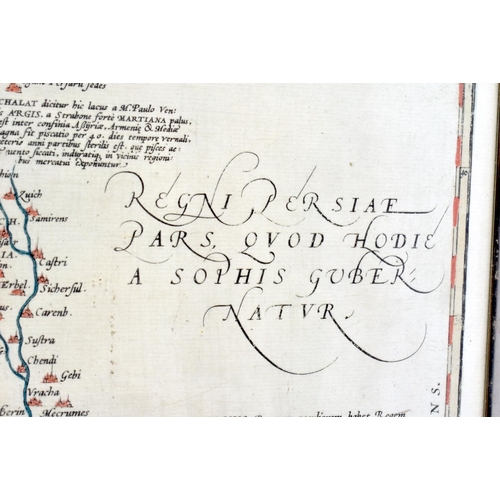 sedes
CHALAT dicitur hic lacus a M. Paulo Ven:
ARGIS, a Strabone forte MARTIANA palus,
est inter confinia Assyriæ, Armeniæ & Mediæ
agna fit piscatio per 40. dies tempore vernali,
eterio anni partibus sterilis est. que pisces ae
vento siccati, induratiq, in vicinis regioni
bus mercatui exponuntur.
Zuich
Samirens
Castri
Erbel
Sichersul
Carenb.
Sustra
Chendi
Gebi
Vracha
Mecrumes
REGNI PERSIAE
PARS, QVOD HODIE
A SOPHIS GVBER-
NATVR.
habet Regem
NS.